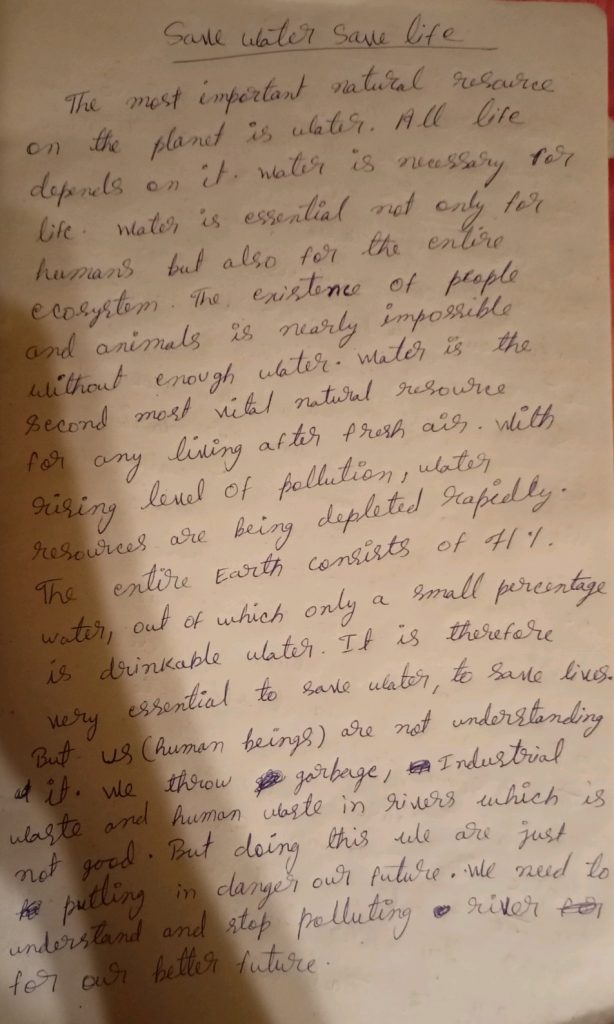 Save water Save life
The most important natural resource
on the planet is water. All life
depends on it. Water is necessary for
life. Water is essential not only for
humans but also for the entire
ecosystem. The existence of people
and animals is nearly impossible
without enough water. Water is the
second most vital natural resource
for any living after fresh air. With
rising level of pollution, water
resources are being depleted rapidly.
The entire Earth consists of 71%.
water, out of which only a small percentage
is drinkable water. It is therefore
very essential to save water, to save lives.
But us (human beings) are not understanding
it. We throw garbage, Industrial
waste and human waste in rivers which is
not good. But doing this we are just
putting in danger our future. We need to
understand and stop polluting river
for our better future.